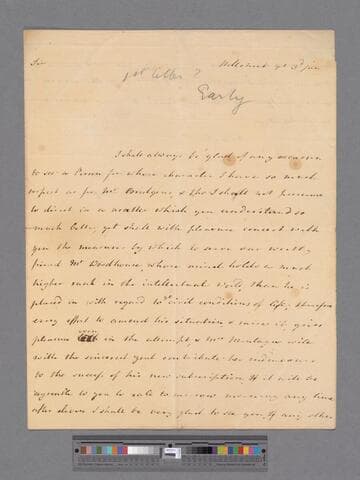 Sir Hill street ye 3d Jan
1st letter?
Early
I shall always be glad of any occasion
to see a Person for whose character I have so much
respect as for Mr Dodsley's, & tho I shall not presume
to direct in a matter which you understand so
much better, yet shall with pleasure concert with
you the manner by which to serve our worthy
friend Mr Woodhouse, whose mind holds a much
higher rank in the intellectual world, than he is
placed in with regard to ye civil conditions of life; therefore
every effort to amend his situation & raise it, gives
pleasure even in the attempt, & Mrs Montagu will
with the sincerest zeal contribute her endeavours
to the success of his new subscription, If it will be
agreable to you to call to morrow morning any time
after eleven I shall be very glad to see you, if any other